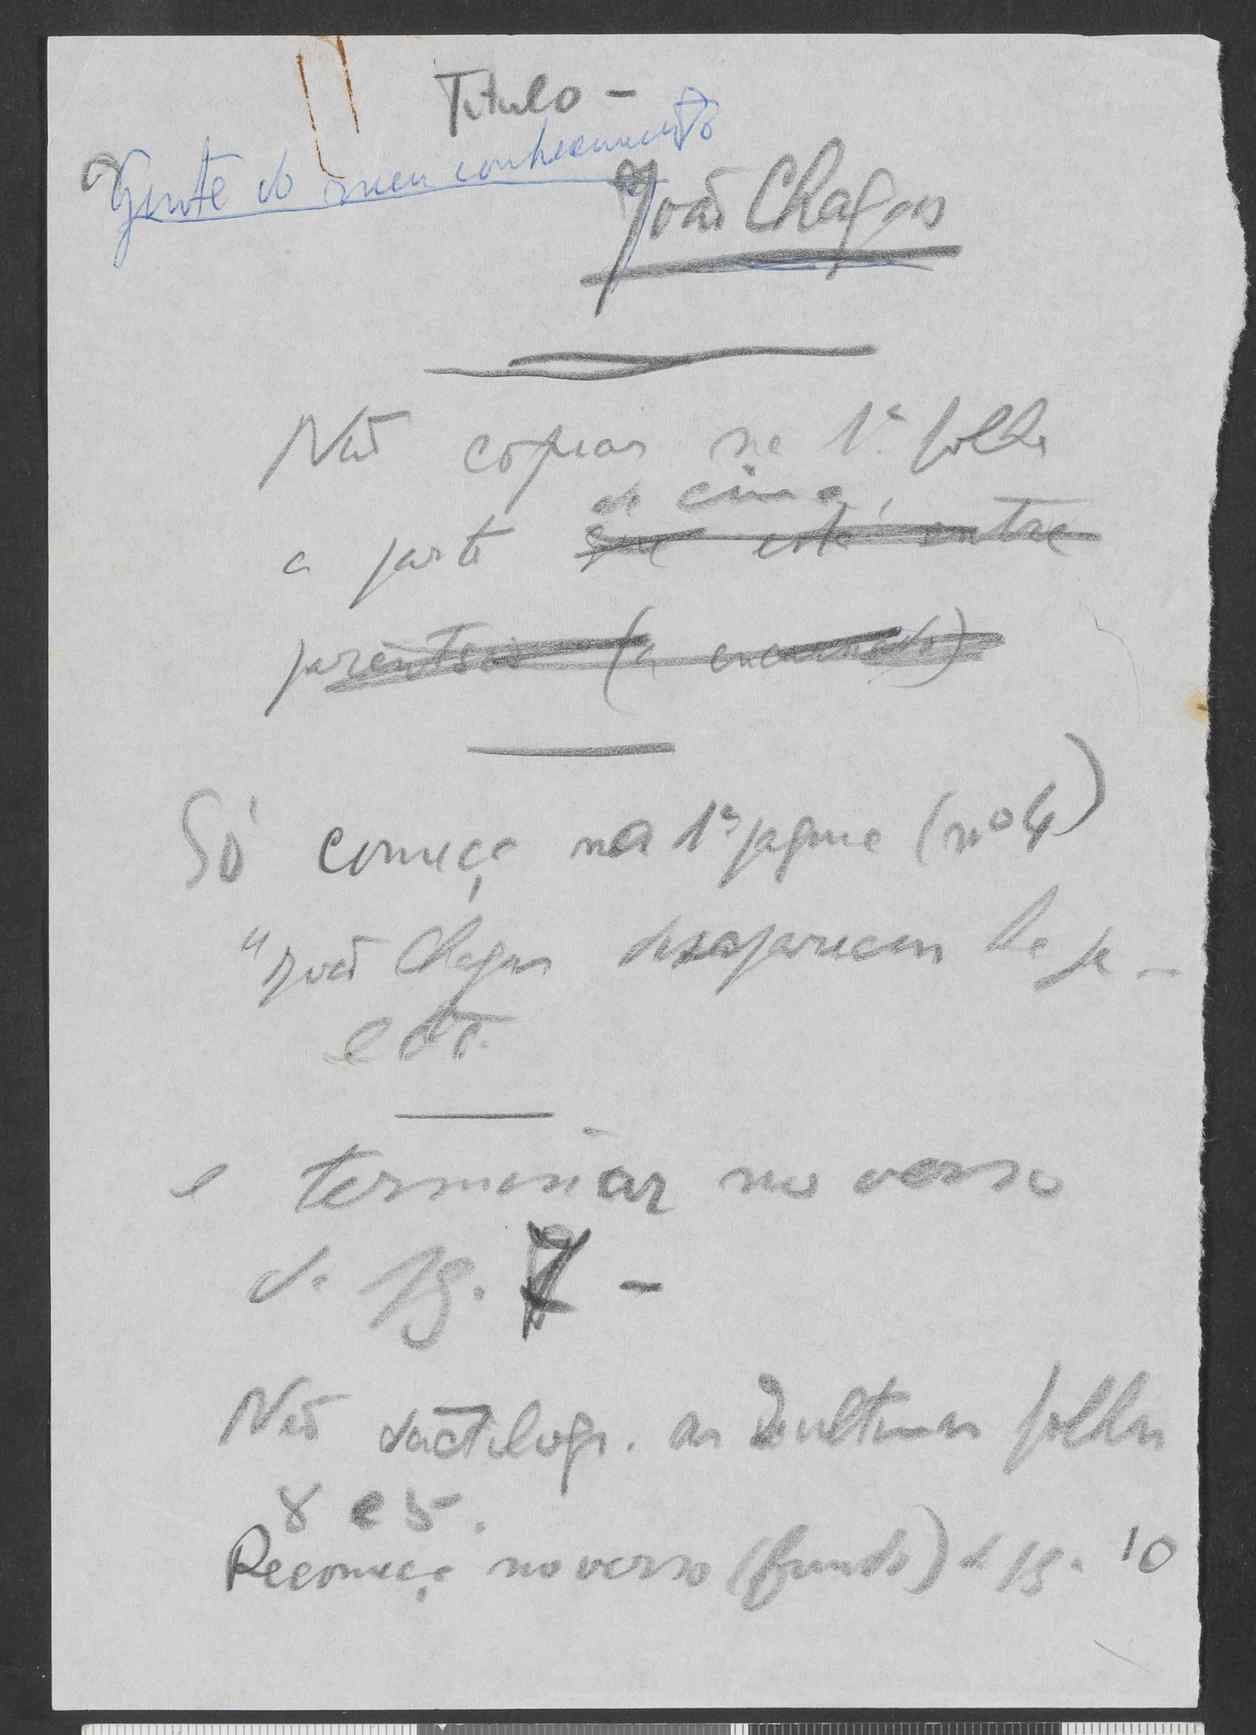 Titulo -
Gente do meu conhecimento
João Chagas
Não copiar na 1ª folha
de cima,
a parte que está entre
parêntesis (a encarnado)
Só começa na 1ª pagina (nº 4)
"João Chagas desapareceu ha je -
etc.
e terminar no verso
da pg. 7 -
Não dactilogr. as 2 ultimas folhas
8 e 5.
Recomeça no verso (fundo) da pg. 10